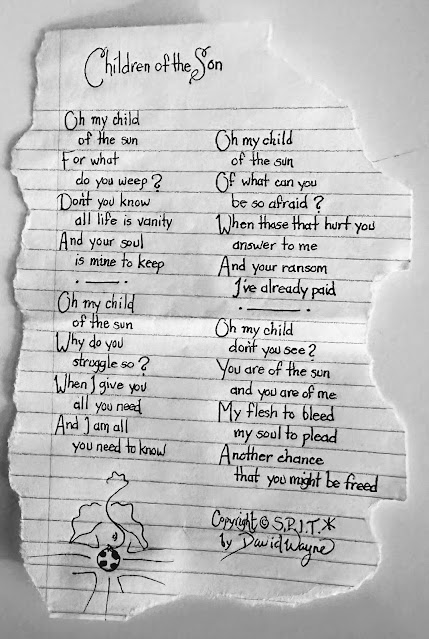 Children of the Son
Oh my child
of the sun
For what
do you weep?
Don't you know
all life is vanity
And your soul
is mine to keep
Oh my child
of the sun
Why do you
struggle so?
When I give you
all you need
And I am all
you need to know
Oh my child
of the sun
Of what can you
be so afraid?
When those that hurt you
answer to me
And your ransom
I've already paid
Oh my child
don't you see?
You are of the sun
and you are of me
My flesh to bleed
my soul to plead
Another chance
that you might be freed
Copyright © S.P.I.T.*
by David Wayne